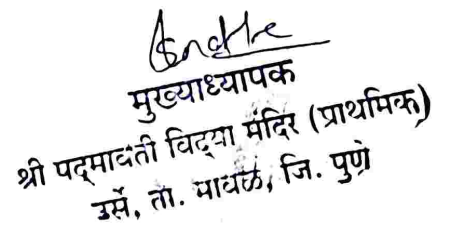 मुख्याध्यापक
श्री पद्मावती विद्या मंदिर (प्राथमिक)
उर्से, ता. मावळ, जि. पुणे